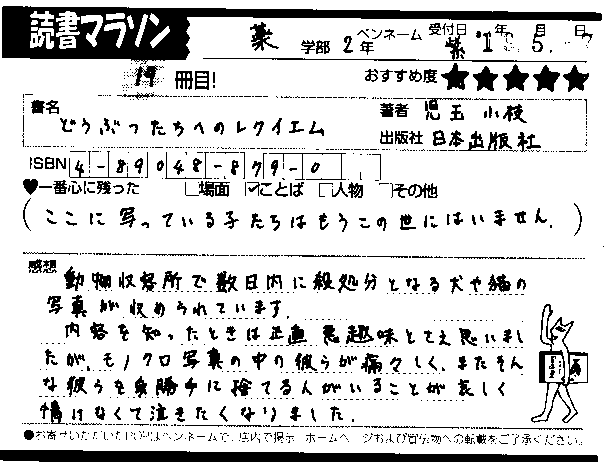 読書マラソン
薬 学部 2年 ペンネーム 紫 受付日 年 月 日
19 冊目! おすすめ度 ★★★★★
書名 どうぶつたちへのレクイエム
著者 児玉 小枝
出版社 日本出版社
ISBN 4-89048-879-0
♥一番心に残った □場面 ☑ことば □人物 □その他
(ここに写っている子たちはもうこの世にはいません。)
感想
動物収容所で数日内に殺処分となる犬や猫の
写真が収められています。
内容を知ったときは正直悪趣味とさえ思いまし
たが、モノクロ写真の中の彼らが痛々しく、またそん
な彼らを身勝手に捨てる人がいることが哀しく
情けなくて泣きたくなりました。
●お寄せいただいたPOPはペンネームで、店内で掲示 ホームページおよび宣伝物への転載をご了承ください。